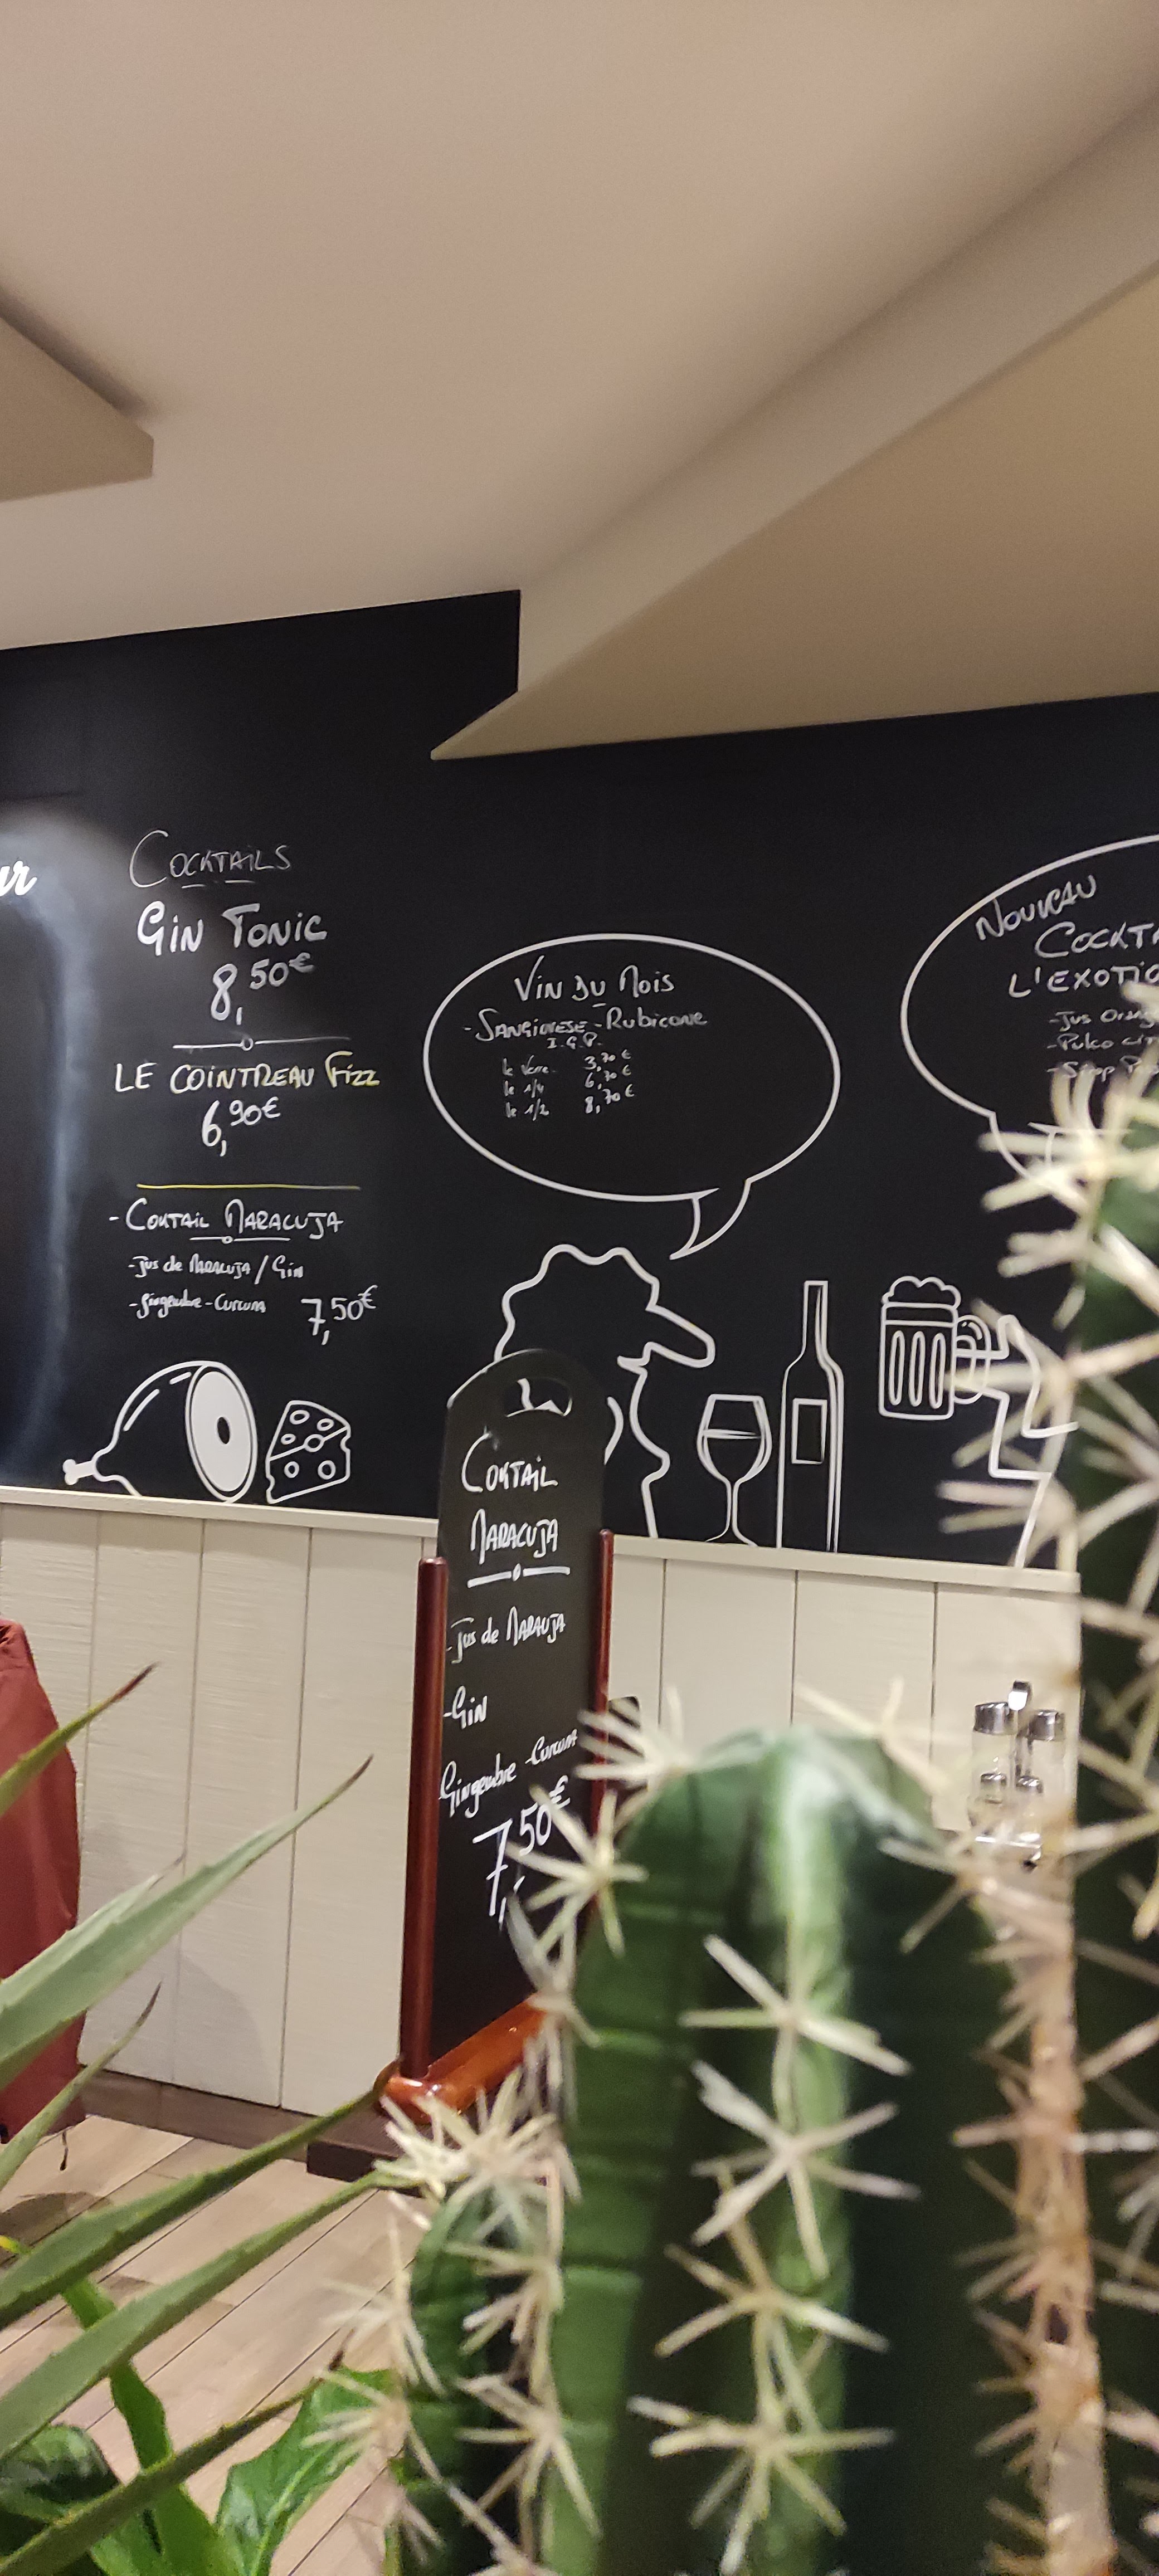 Cocktails
Gin Tonic
8,50€
Le Cointreau Fizz
6,90€
- Coktail Maracuja
- Jus de Maracuja / Gin
- Gingembre - Curcuma 7,50€
Vin du Mois
- Sangiovese - Rubicone
I.G.P.
le Verre 3,70€
le 1/4 6,70€
le 1/2 8,70€
Nouveau
L'Exotic
- Jus Orang
- Pulco cit
- Sirop
Coktail
Maracuja
- Jus de Maracuja
- Gin
Gingembre - Curcuma
7,50€